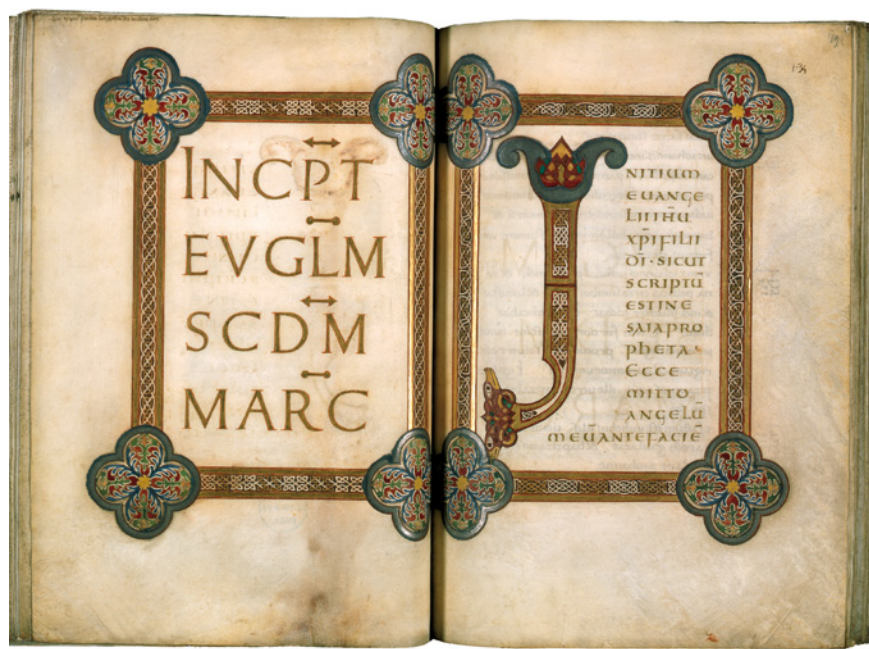 INCPT
EVGLM
SCDM
MARC
INITIUM
EUANGE
LIIIHŪ
XP̄IFILII
DĪ·SICUT
SCRIPTŪ
ESTINE
SAIAPRO
PHETA·
ECCE
MITTO
ANGELŪ
MEŪANTEFACIĒ